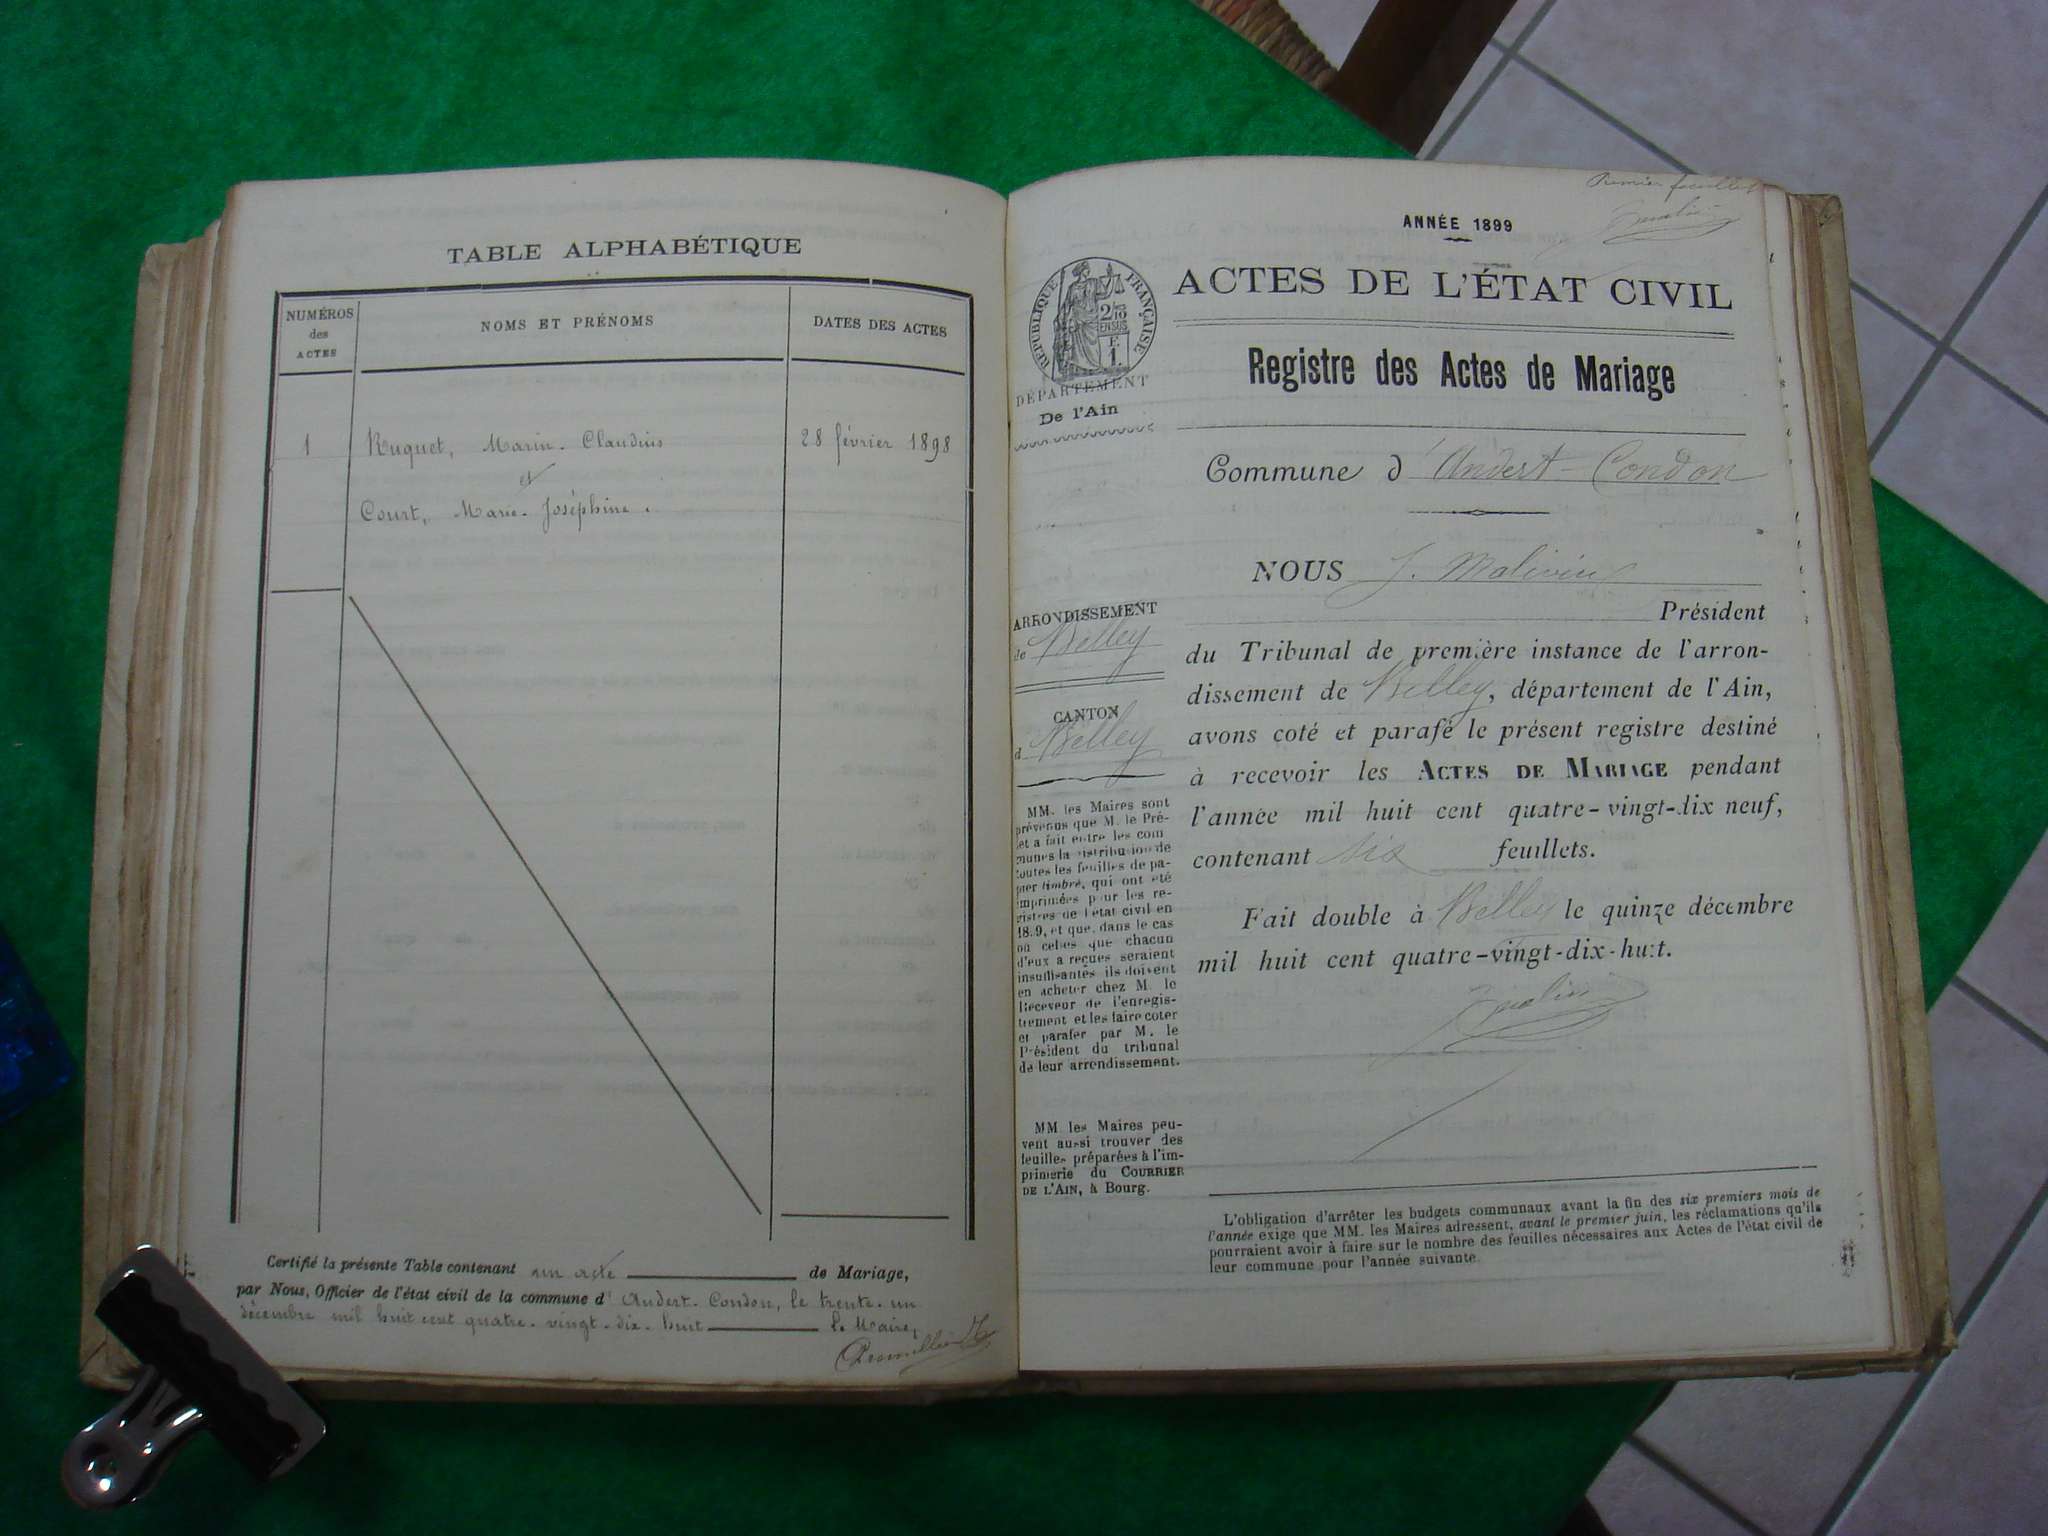 TABLE ALPHABÉTIQUE
NUMÉROS
des
ACTES
NOMS ET PRÉNOMS
DATES DES ACTES
1
Ruquet, Marin-Claudius
28 février 1898
et
Court, Marie-Joséphine.
Certifié la présente Table contenant un acte de Mariage,
par Nous, Officier de l'état civil de la commune d'Andert-Condon, le trente-un
décembre mil huit cent quatre-vingt-dix-huit le Maire,
Premier feuillet
ANNÉE 1899
RÉPUBLIQUE FRANÇAISE
2/10
EN SUS
F.
1.
DÉPARTEMENT
De l'Ain
ACTES DE L'ÉTAT CIVIL
Registre des Actes de Mariage
Commune d'Andert-Condon
NOUS J.
Président
du Tribunal de première instance de l'arron-
dissement de Belley, département de l'Ain,
avons coté et parafé le présent registre destiné
à recevoir les ACTES DE MARIAGE pendant
l'année mil huit cent quatre-vingt-dix neuf,
contenant six feuillets.
Fait double à Belley le quinze décembre
mil huit cent quatre-vingt-dix-huit.
ARRONDISSEMENT
de Belley
CANTON
d Belley
MM. les Maires sont
prévenus que M. le Pré-
fet a fait entre les com
munes la distribution de
toutes les feuilles de pa-
pier timbré, qui ont été
imprimées pour les re-
gistres de l'état civil en
1899, et que, dans le cas
où celles que chacun
d'eux a reçues seraient
insuffisantes ils doivent
en acheter chez M. le
Receveur de l'enregis-
trement et les faire coter
et parafer par M. le
Président du tribunal
de leur arrondissement.
MM. les Maires peu-
vent aussi trouver des
feuilles préparées à l'im-
primerie du COURRIER
DE L'AIN, à Bourg.
L'obligation d'arrêter les budgets communaux avant la fin des six premiers mois de
l'année exige que MM. les Maires adressent, avant le premier juin, les réclamations qu'ils
pourraient avoir à faire sur le nombre des feuilles nécessaires aux Actes de l'état civil de
leur commune pour l'année suivante.